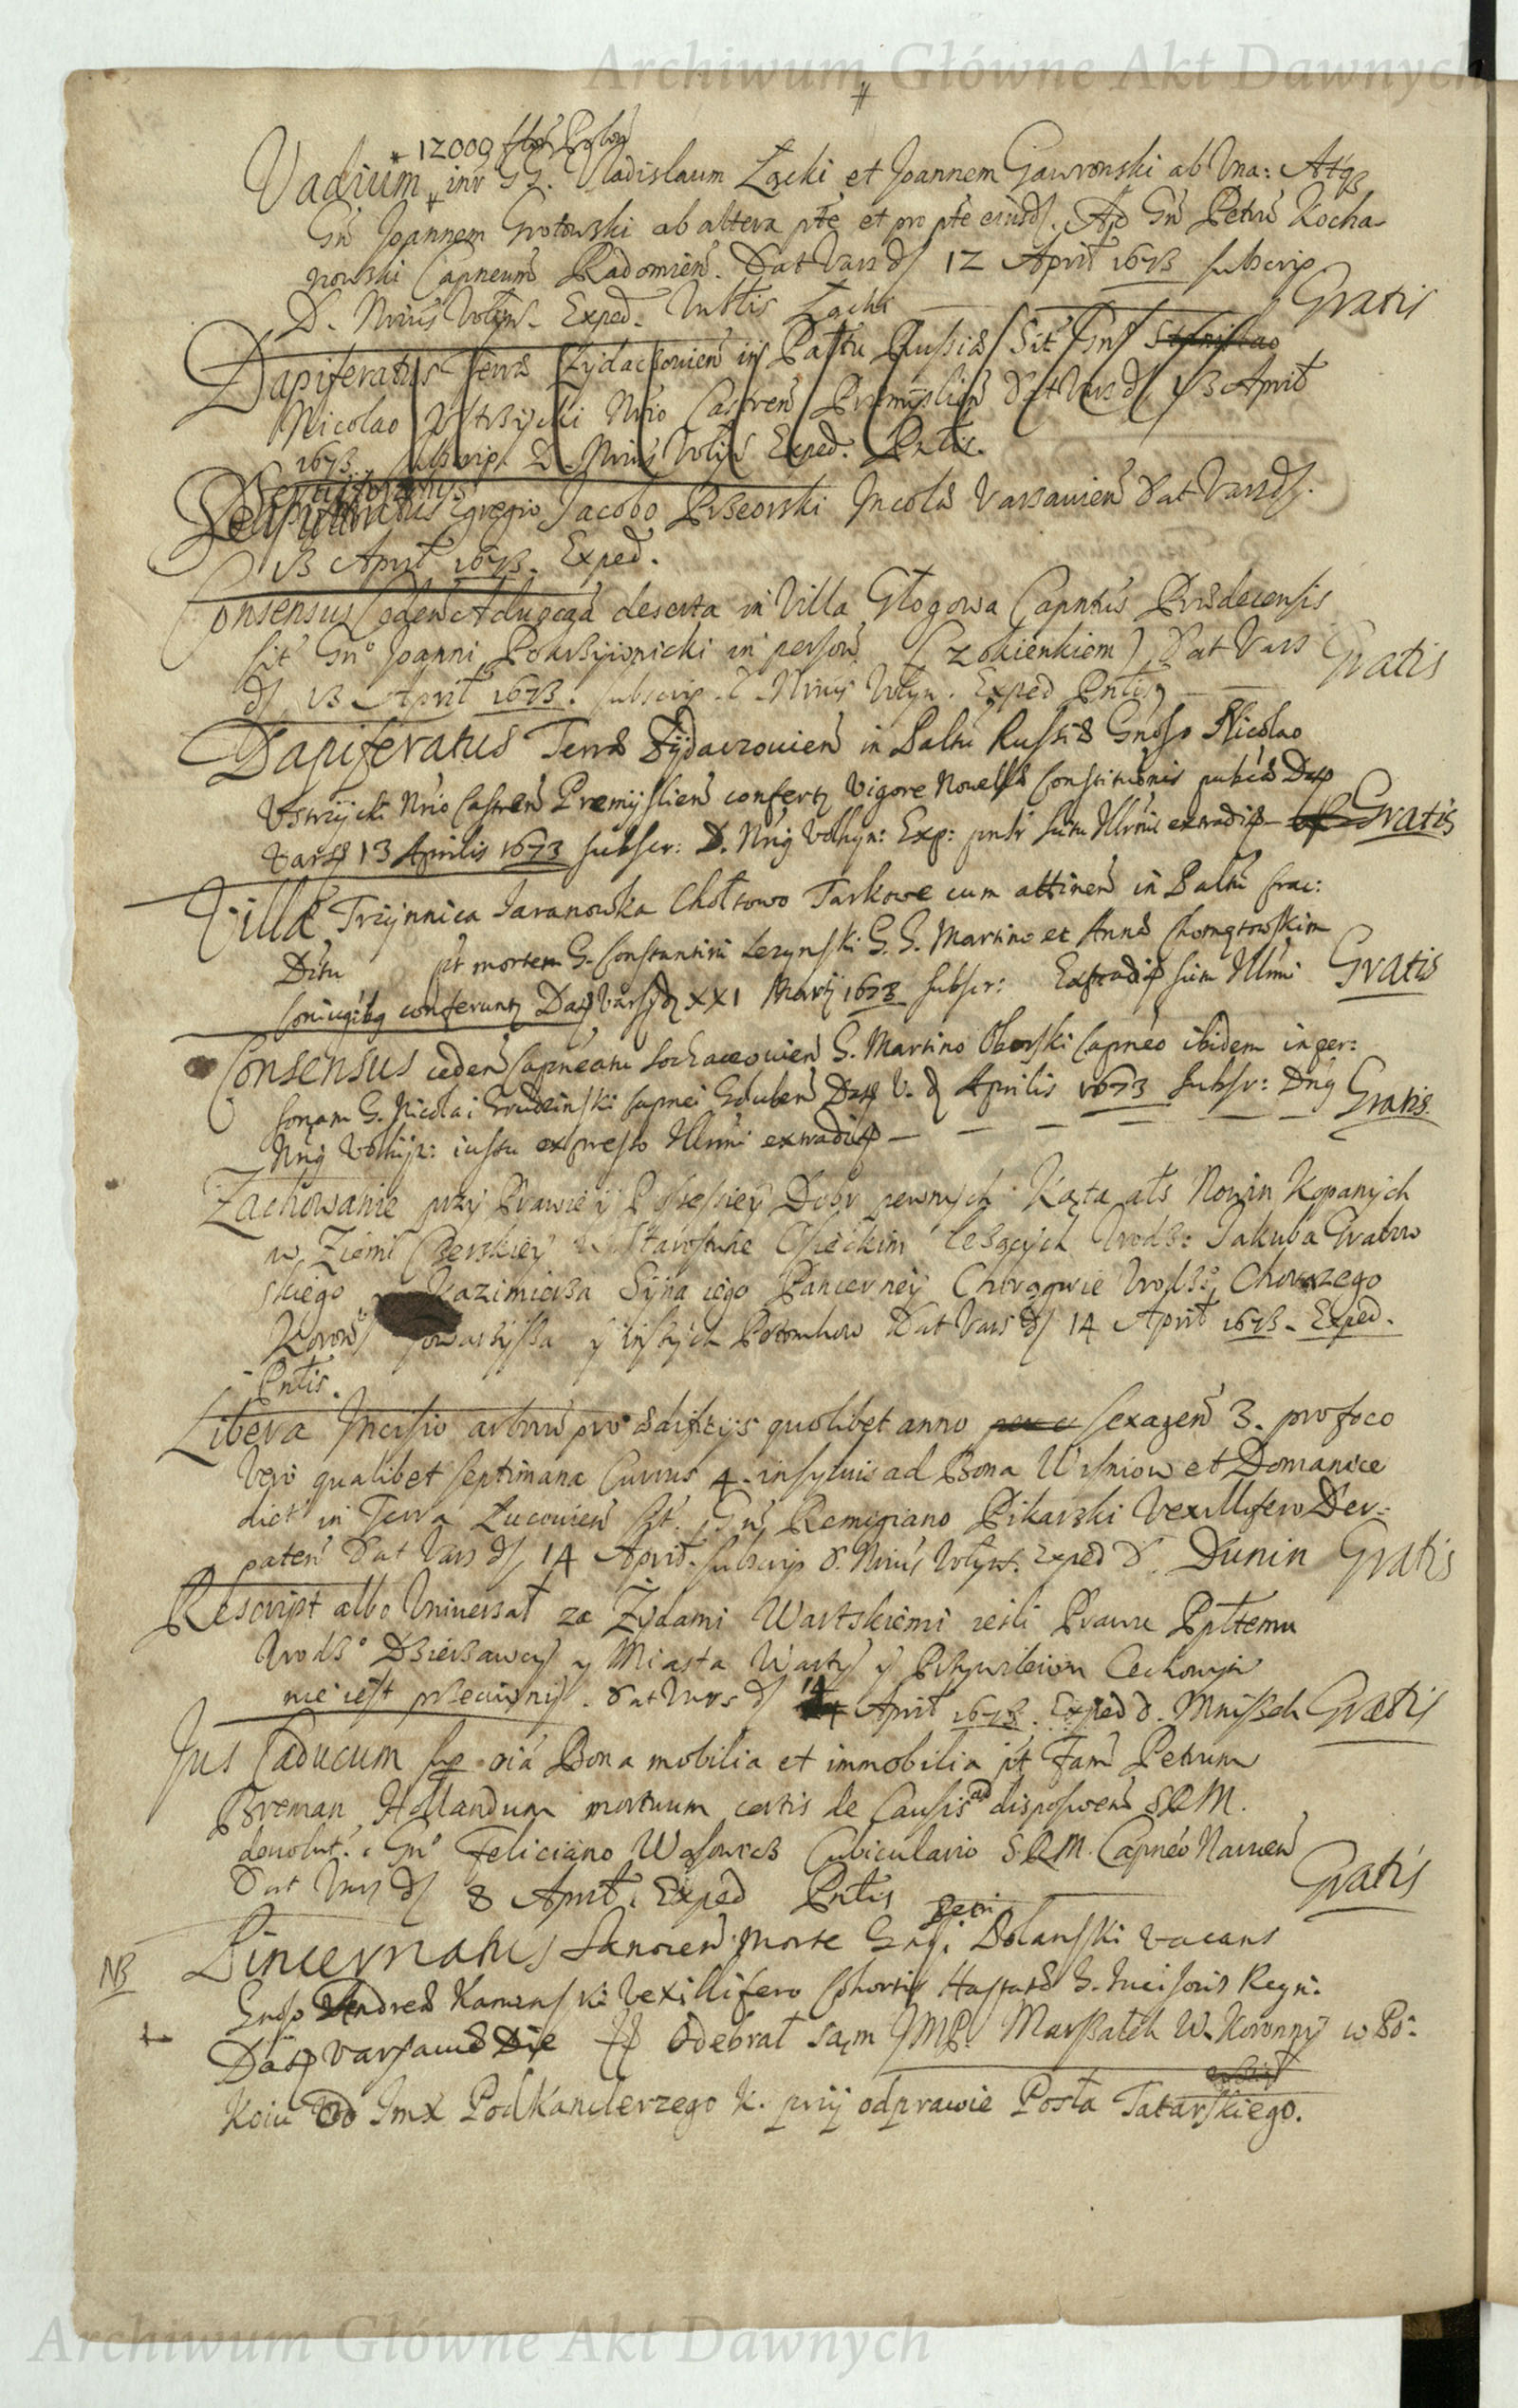 Archiwum Główne Akt Dawnych
#
12000 flor Polon
Vadium inr GG. Vladislaum Łącki et Joannem Gawronski ab Vna: Atqz
Gn Joannem Grotowski ab altera pte et pro pte eiusd. Ad Gn Petru Kocha-
nowski Capneum Radomien. Dat Vars d 12 April 1673 subscrip
D. Nrius Volyn. Exped. Łącki Gratis
Dapiferatus Terræ Zydaczouien in Pattu Russiæ Sit Gn
Nicolao Vstrzycki Nrio Castren Præmyslien Dat Vars d 13 April
1673 subscrip. D. Nrius Volyn Exped. Pntis.
Seruitoratus Egregio Jacobo Przeorski Incolæ Varsauien Dat Vars d.
13 April 1673. Exped.
Consensus Ceden Aduocaa deserta in Villa Głogowa Capntus Przedecensis
sit Gno Joanni Pokrzywnicki in person (z okienkiem) Dat Vars Gratis
d 13 April 1673. subscrip. D. Nrius Volyn. Exped Pntis
Dapiferatus Terræ Zÿdaczouien in Paltu Russiæ Gnoso Nicolao
Vstrzycki Nrio Castren Premyslien confert Vigore Nouellæ Constitutionis publicæ Dat
Vars 13 Aprilis 1673 subscr: D. Nrius Volhyn: Exp: iussu Illrmi extradit Gratis
Villæ Trzÿnnica Jaranowka Chołtowo Tarkowe cum attinen in Paltu Crac:
Ditu pt mortem G. Constantini Lezynski G. G. Martino et Annæ Chomętowskim
coniugibus conferunt Dat Vars d XXI Martii 1673 subscr: Extradit Illrmi Gratis
Consensus ceden Capneatu Sochaczouien G. Martino Oborski Capneo ibidem in per:
sonam G. Nicolai Grudzinski Capnei Gduben Dat V. d Aprilis 1673 subscr: Dnus
Nrius Volhÿn: iussu expresso Illrmi extradit Gratis
Zachowanie przy Prawie y Possessiey Dobr pewnych Kąta als Nowin Kopanych
w Ziemi Czerskiey w Starostwie Osieckim leżących Vrodz: Jakuba Grabow
skiego Kazimierza Syna iego Pancerney Chorągwie Vrodz: Chorążego
Koron Towarzyssa y inszych Potomkow Dat Vars d 14 April 1673. Exped.
Pntis.
Libera Incisio arboru pro ædificiis quolibet anno sexagen 3. pro foco
Vero qualibet septimana Currus 4. in syluis ad Bona Wisniow et Domanice
dict in Terra Łucouien Gn Remigiano Pikarski Vexillifero Der-
paten Dat Vars d 14 April. subscrip D. Nrius Volyn. Exped D. Dunin Gratis
Rescript albo Vniuersał za Żydami Wartskiemi iesli Prawu Ppltemu
Vrodz° Dzierżawcy y Miasta Warty y Przywileiom Cechowym
nie iest przeciwny. Dat Vars d 14 April 1673. Exped D. Mniszch Gratis
Jus Caducum sup oia Bona mobilia et immobilia pt Fam Petrum
Breman Hollandum mortuum certis de Causis ad disposicen S.R.M.
deuolut. Gno Feliciano Wąsowicz Cubiculario S.R.M. Capneo Naruen
Dat Vars d 8 April. Exped Pntis Gratis
NB Pincernatus Sanocen Morte Petri Bolanski vacans
Gnoso Andreæ Kaminski Vexillifero Cohortis Hastatæ G. Incisoris Regni.
Dat Varsauiæ Die Odebrał sam JMP. Marszałek W. Koronny w Po-
koiu Imx PodKanclerzego K. przy odprawie Posła Tatarskiego.
Archiwum Główne Akt Dawnych